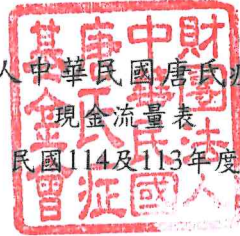 人中華民國唐氏
現金流量表
民國114及113年度
財團法人
中華民國
唐氏症
基金會